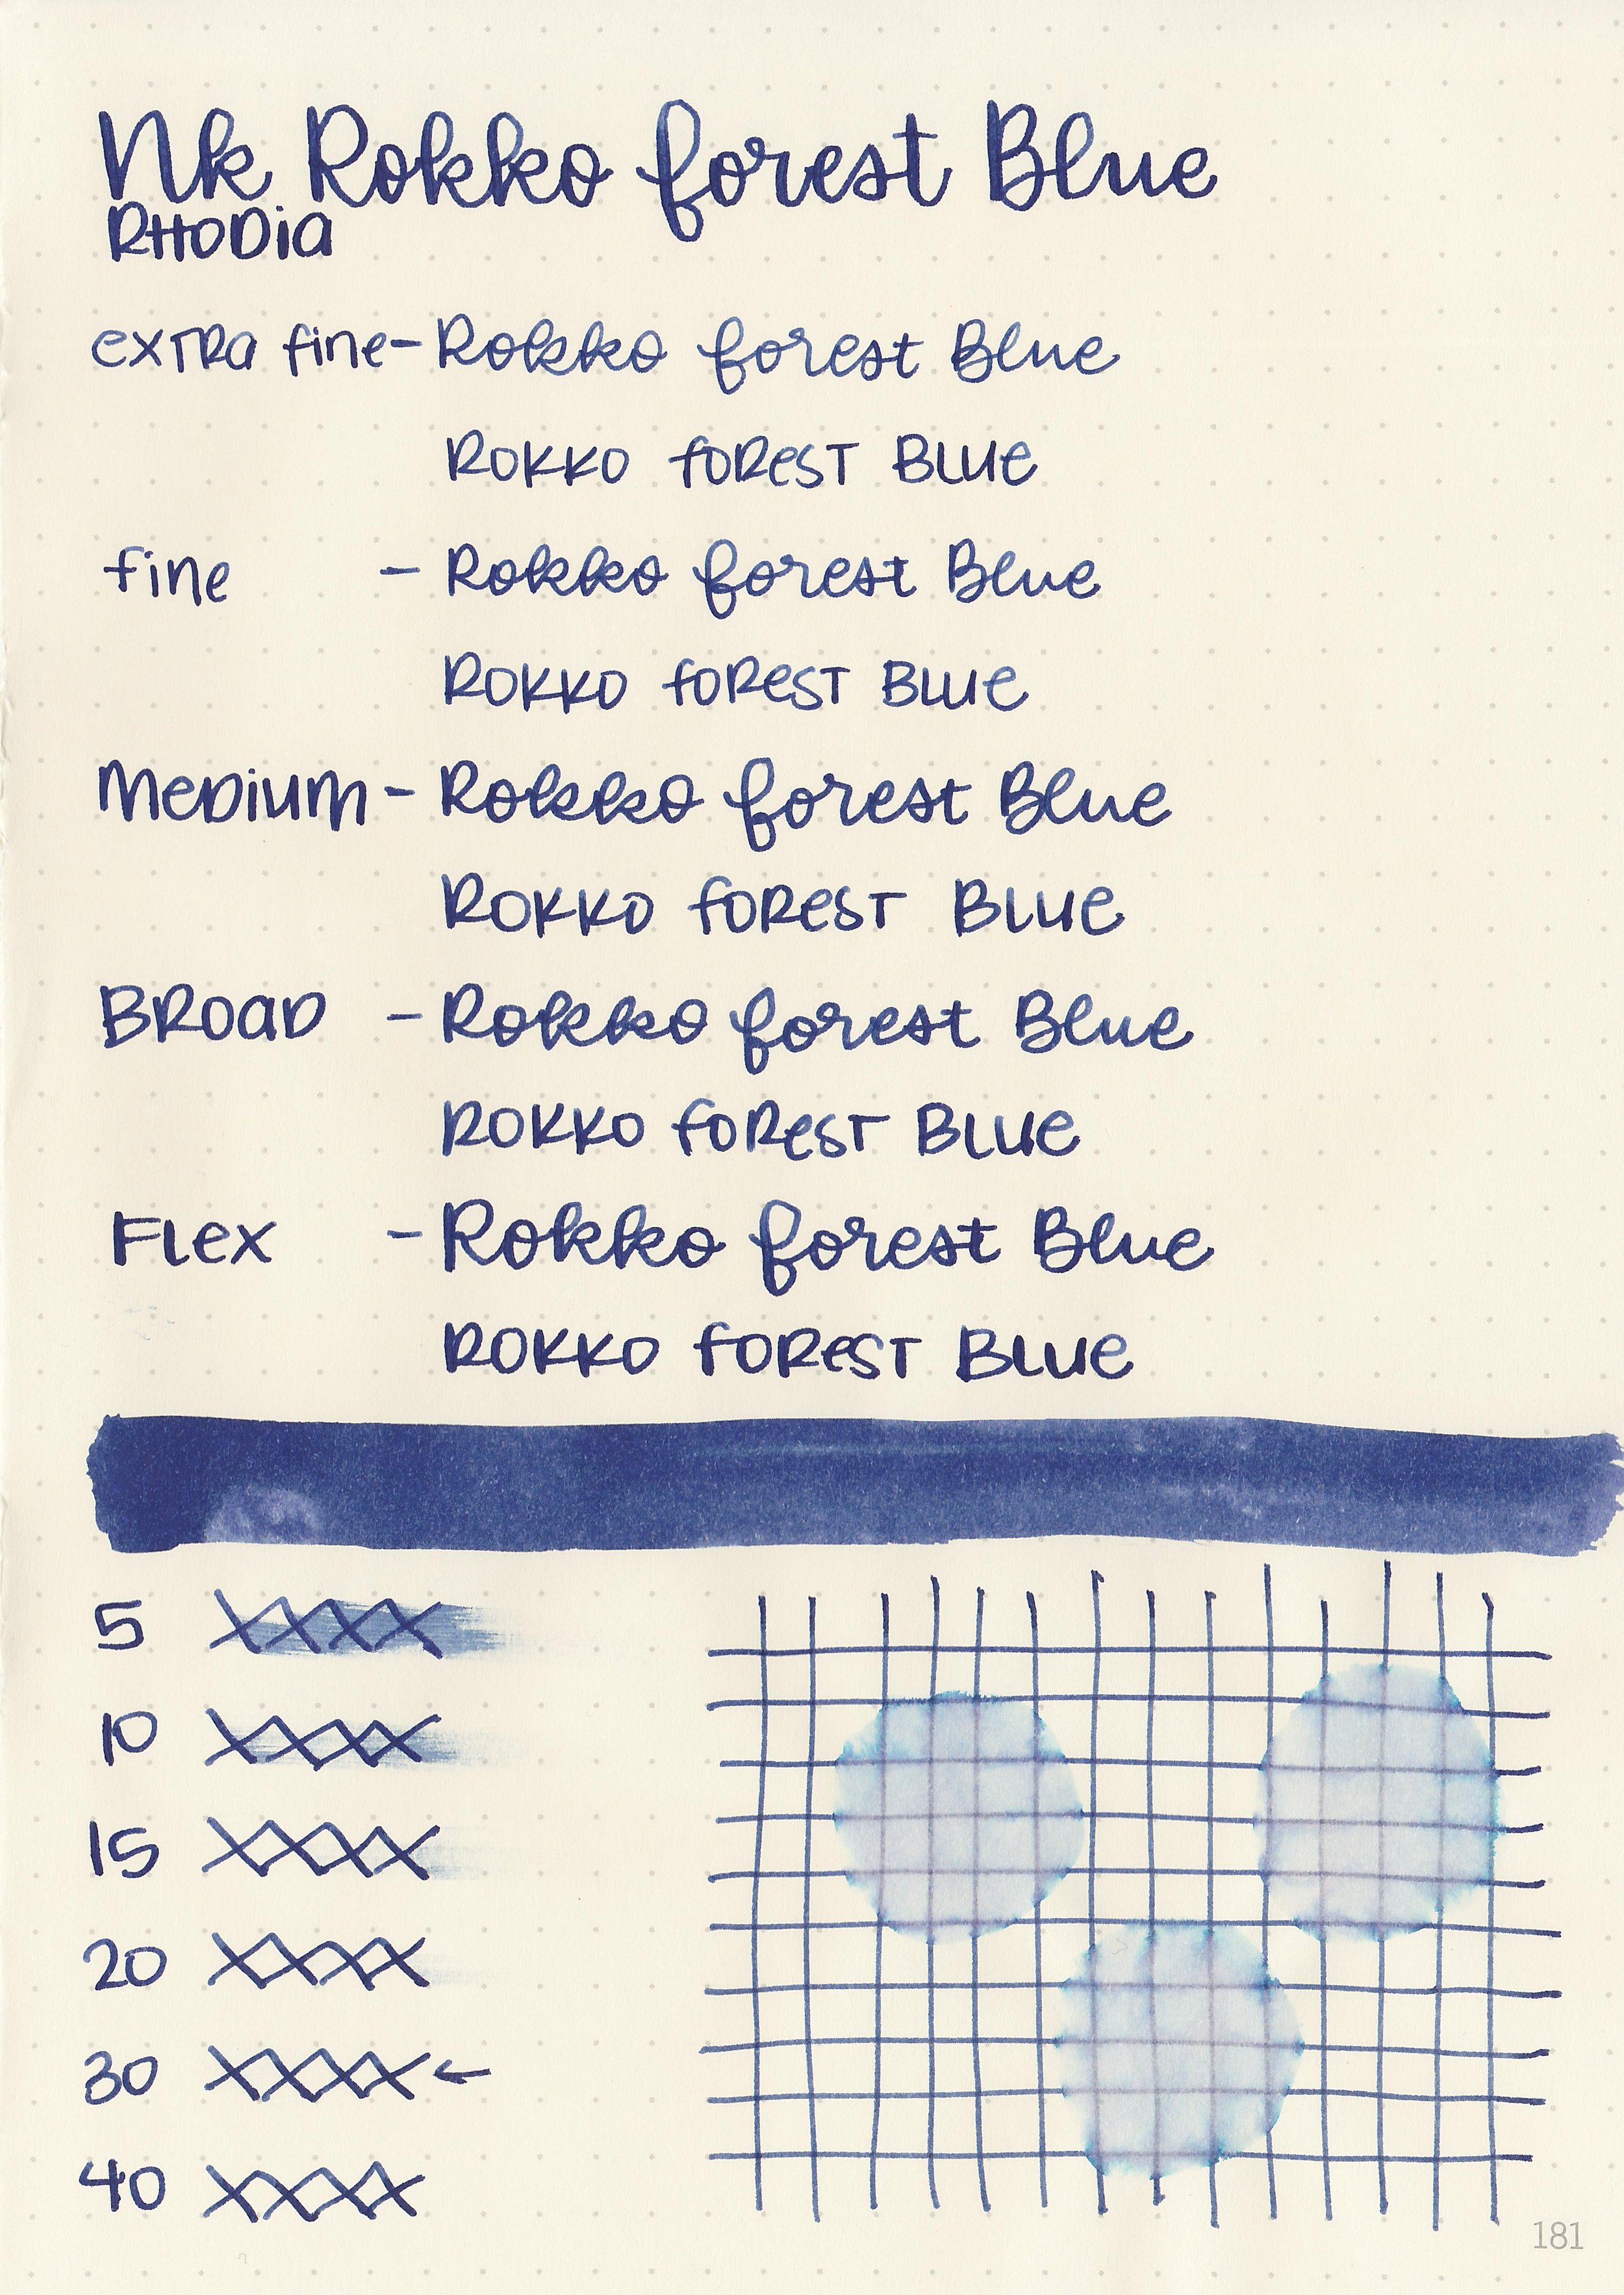 Nk Rokko forest Blue
RHODia
exTRa fine - Rokko forest Blue
ROKKO foResT BLUe
fine - Rokko forest Blue
ROKKO foResT BLUe
MeDiuM - Rokko forest Blue
ROKKO foResT BLUe
BRoaD - Rokko forest Blue
ROKKO foResT BLUe
FLex - Rokko forest Blue
ROKKO FoResT BLUe
5 XXXX
10 XXXX
15 XXXX
20 XXXX
30 XXXX ←
40 XXXX
181